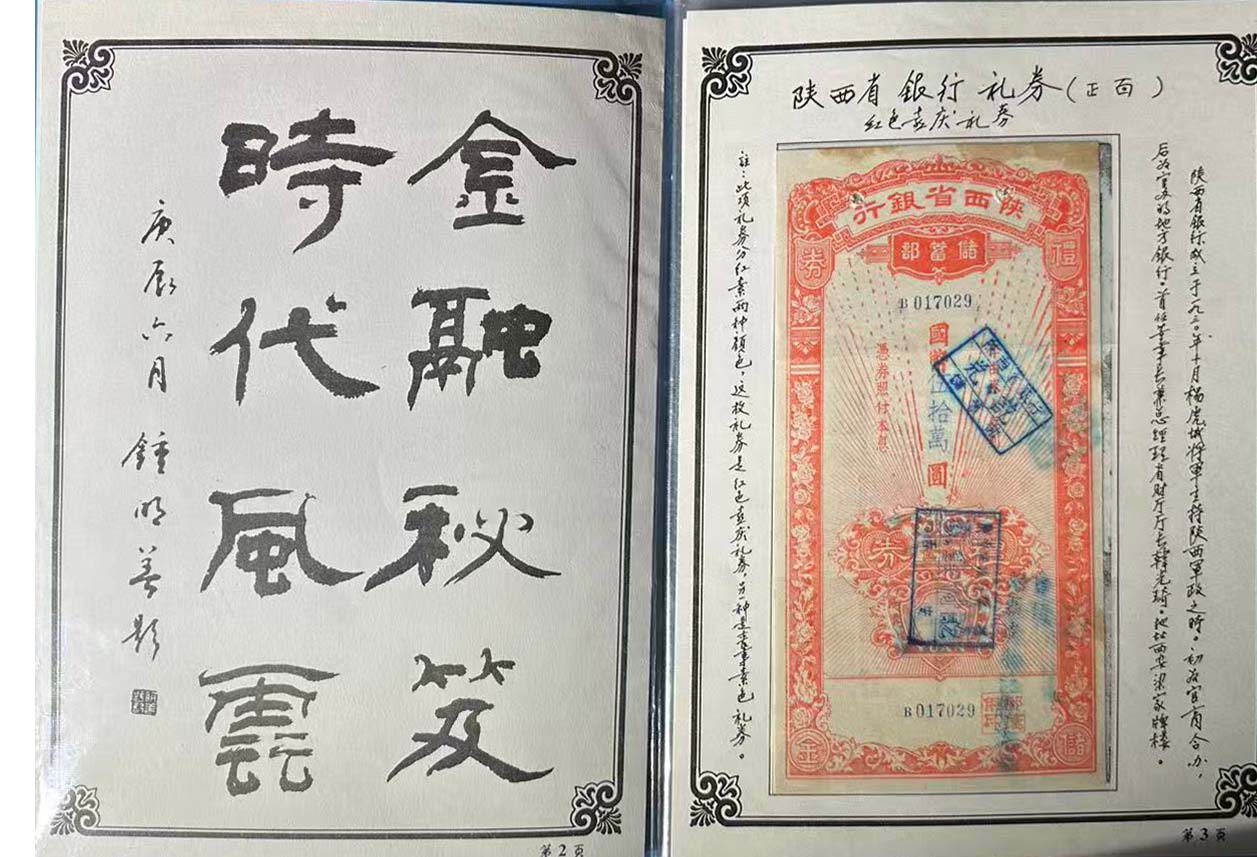 金融秘笈
時代風雲
庚辰六月 鍾明善题
第2页
陕西省銀行礼券(正面)
红色喜庆礼券
陕西省銀行成立于一九三〇年十月杨虎城将軍主持陕西軍政之時。初为官商合办,
后为官办的地方銀行。首任董事长兼总经理省财厅厅长韓光琦。地址西安梁家牌楼。
行銀省西陕
部蓄儲
禮
券
B 017029
國幣伍拾萬圓
憑券照付本息
券
B 017029
金
儲
註:此项礼券分红素两种颜色,这枚礼券是红色喜庆礼券,另一种是丧事素色礼券。
第3页